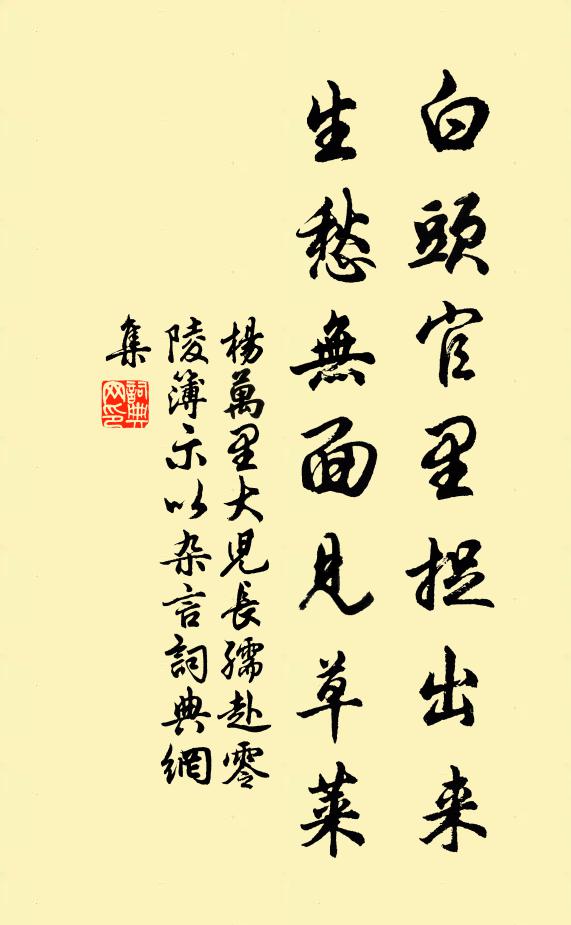 白頭官里捉出来
生愁無面見草萊
楊萬里大児長孺赴零
陵簿示以杂言詞典網
集
詞典網印